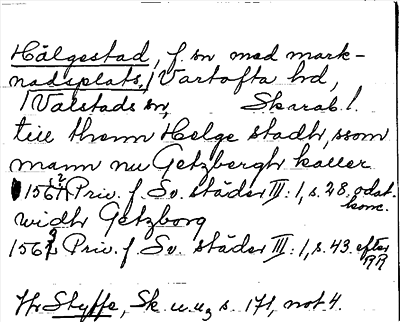 Hälgestad, f. sn med mark-
nadsplats, Vartofta hd,
Valstads sn, Skarab. l.
till thenn Helge stadh, ssom
mann nu Getzbergh kaller
1562 Priv. f. Sv. städer III:1, s. 28. odat. konc.
widh Getzborg
1562 Priv. f. Sv. städer III:1, s. 43. efter RR
Styffe, Sk. u. u, s. 171, not 4.